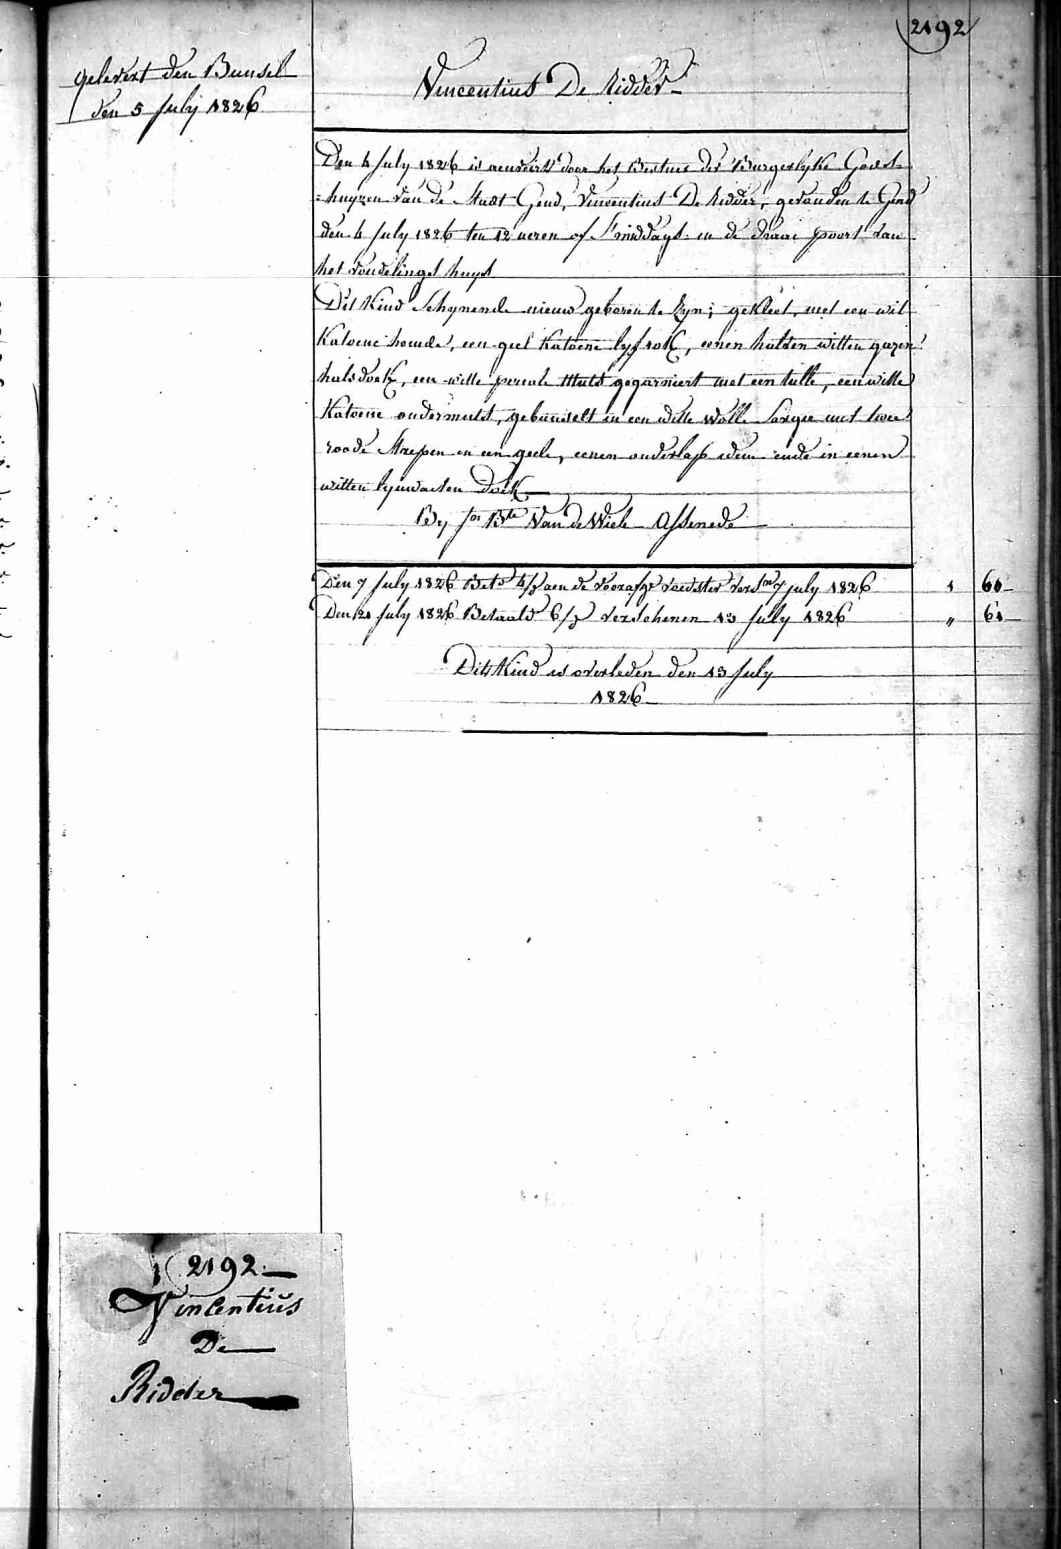 2192
gelevert den Bunsel
den 5 July 1826
Vincentius De Ridder
Den 4 July 1826 is aenveirt door het Bestuer der Burgerlyke Godts-
=huyzen van de Stadt Gend, Vincentius De Ridder, gevonden te Gend
den 4 July 1826 ten 12 ueren of S'middags in de draai poort van
het vondelings huys
Dit Kind Schynende nieuw geboren te Zyn; gekleet, met een wit
Katoene hemde, een geel Katoene lyfrok, eenen halven witten gazen
halsdoek, een witte percale Muts gegarniert met een tulle, een witte
Katoene ondermuts, gebunselt in een witte wolle Sargie met twee
roode Strepen en een geele, eenen onderlap idem ende in eenen
witten lynwaeten Doek
By Jos Bte Van de Wiele Assenede
Den 7 July 1826 Bete 4/3 aen de voorafge voedster Versne 7 July 1826 1 60
Den 21 July 1826 Betaald 6/3 Verschenen 13 July 1826 " 61
Dits Kind is overleden den 13 July
1826
2192
Vincentius
De
Ridder